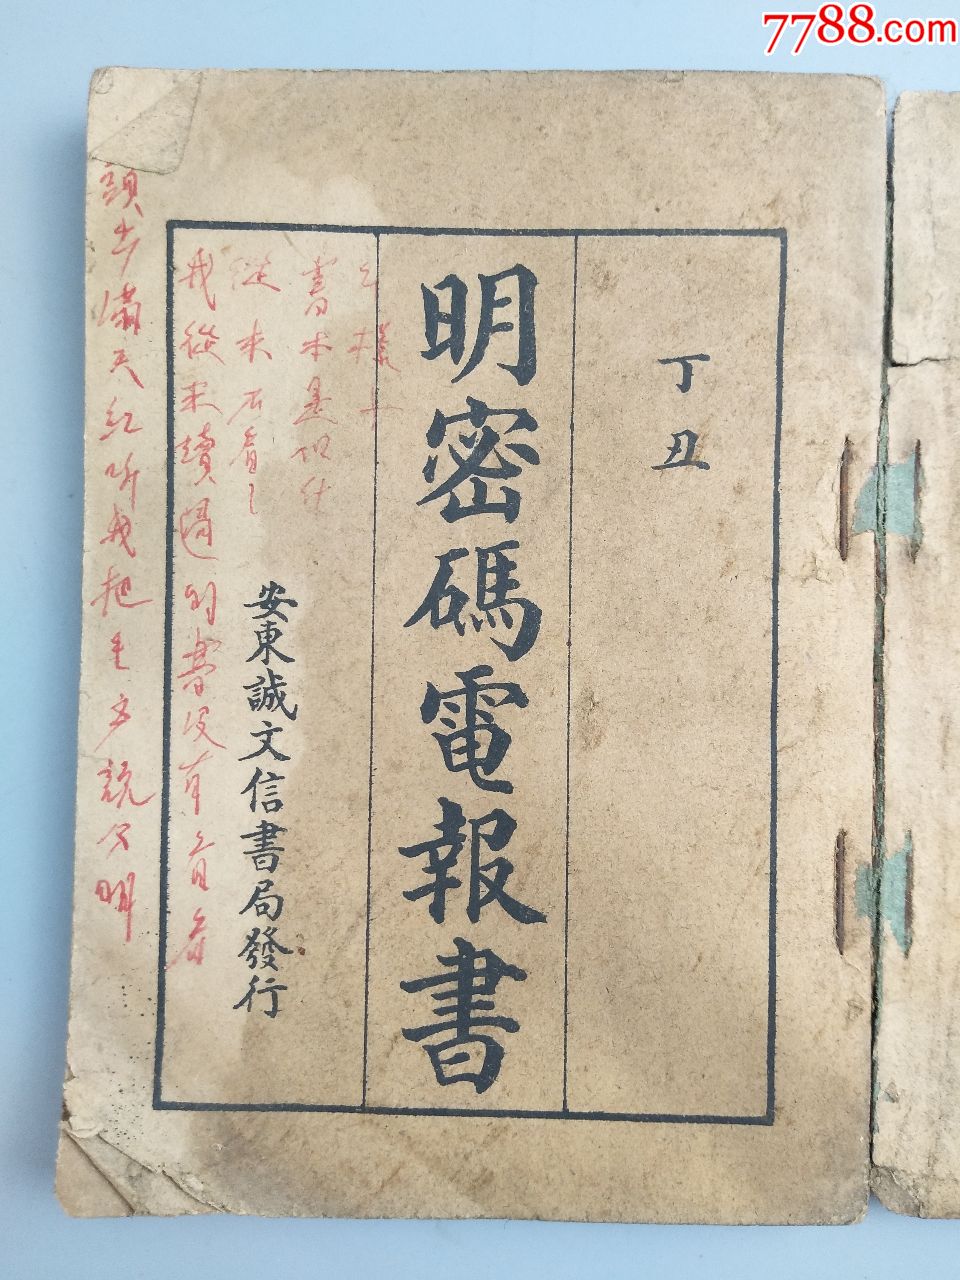 7788.com
丁丑
明密碼電報書
安東誠文信書局發行
樣
書本是
從未看
我從未讀過的書沒有看看
滿天紅听我把主文說分明